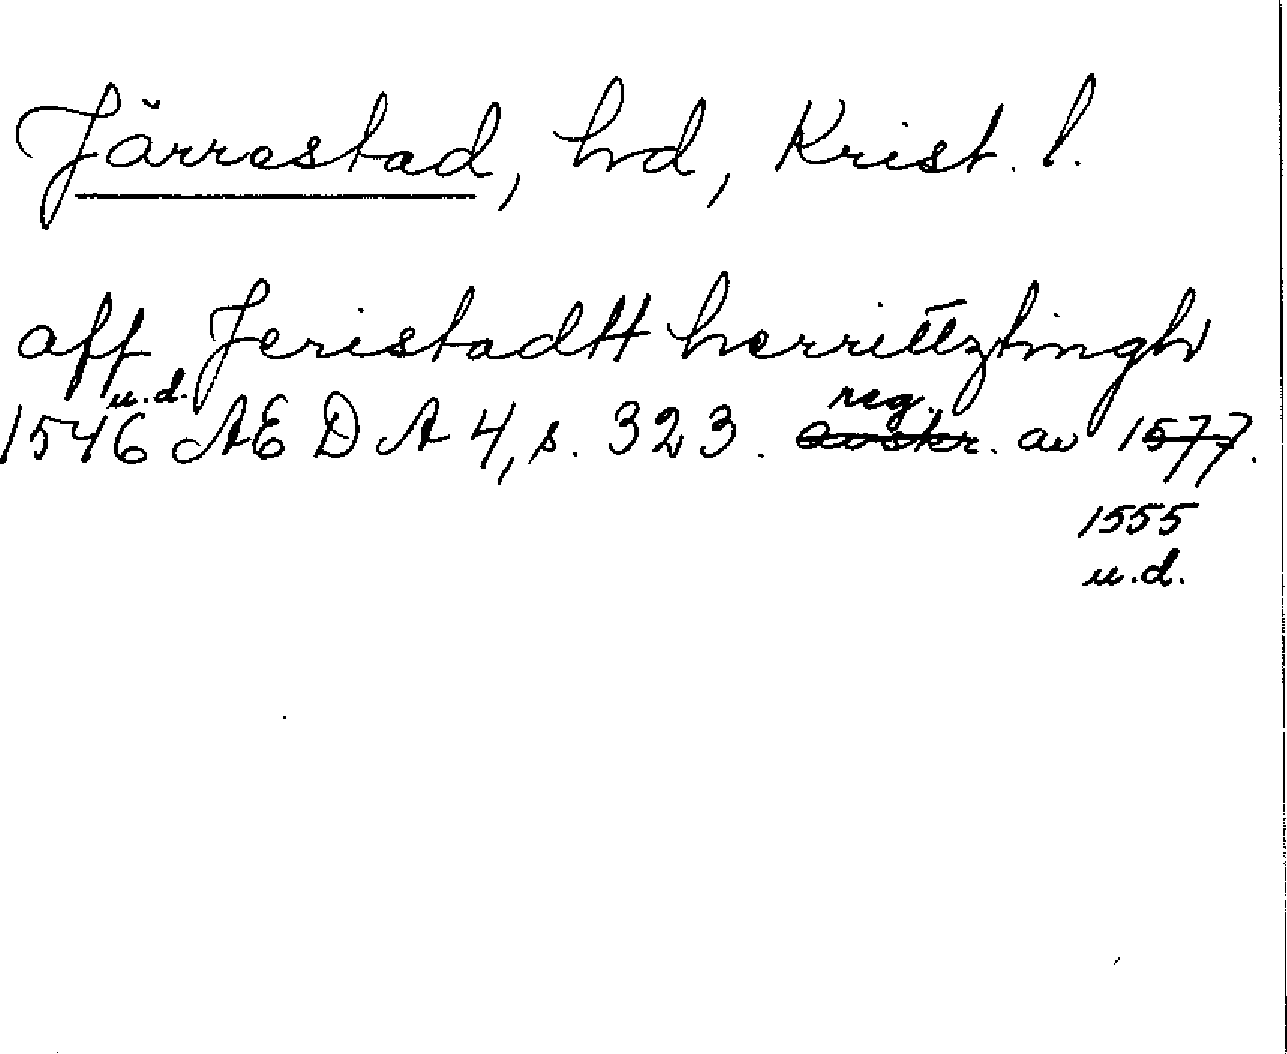 Järrestad, hd, Krist. l.
aff Jeristadtt herrittztingh
u.d. reg.
1546 AE D A 4, s. 323. avskr. av 1577.
1555
u.d.